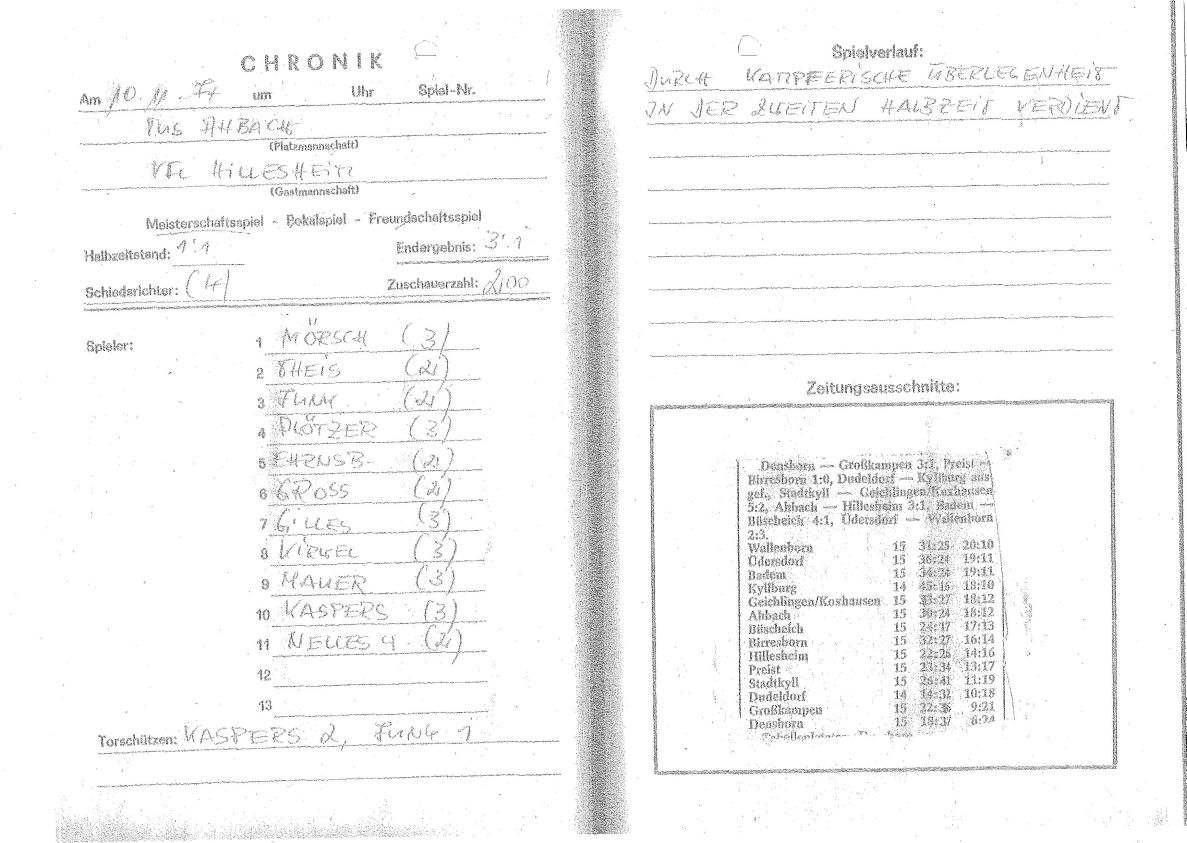 CHRONIK
Am 10. 11. 74 um Uhr Spiel-Nr.
TUS AHBACH
(Platzmannschaft)
VFL HILLESHEIM
(Gastmannschaft)
Meisterschaftsspiel - Pokalspiel - Freundschaftsspiel
Halbzeitstand: 1:1 Endergebnis: 3:1
Schiedsrichter: (4) Zuschauerzahl: 200
Spieler: 1 MÖRSCH (3)
2 THEIS (2)
3 JUNK (2)
4 PLÖTZER (3)
5 EHRNSB. (2)
6 GROSS (2)
7 GILLES (3)
8 VIRKEL (3)
9 MAUER (3)
10 KASPERS (3)
11 NELLES 4 (2)
12
13
Torschützen: KASPERS 2, JUNK 1
Spielverlauf:
DURCH KAMPFERISCHE ÜBERLEGENHEIT
IN DER ZWEITEN HALBZEIT VERDIENT
Zeitungsausschnitte:
Densborn — Großkampen 3:1, Preist —
Birresborn 1:0, Dudeldorf — Kyllburg aus
gef., Stadtkyll — Geichlingen/Koxhausen
5:2, Ahbach — Hillesheim 3:1, Badem —
Büscheich 4:1, Üdersdorf — Wallenborn
2:3.
Wallenborn 15 31:25 20:10
Üdersdorf 15 36:24 19:11
Badem 15 34:24 19:11
Kyllburg 14 45:16 18:10
Geichlingen/Koxhausen 15 33:27 18:12
Ahbach 15 30:24 18:12
Büscheich 15 24:17 17:13
Birresborn 15 32:27 16:14
Hillesheim 15 22:26 14:16
Preist 15 23:34 13:17
Stadtkyll 15 26:41 11:19
Dudeldorf 14 14:32 10:18
Großkampen 15 22:36 9:21
Densborn 15 18:37 6:24